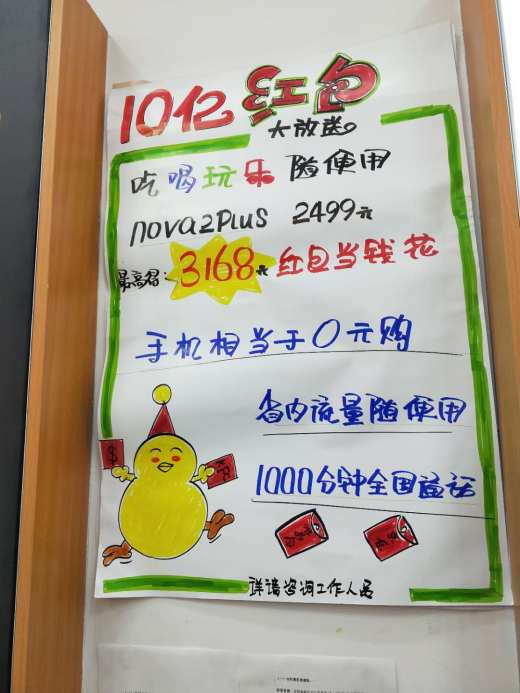 10亿红包
大放送
吃喝玩乐 随便用
nova2Plus 2499元
最高省: 3168元 红包当钱花
手机相当于0元购
省内流量随便用
1000分钟全国通话
详请咨询工作人员